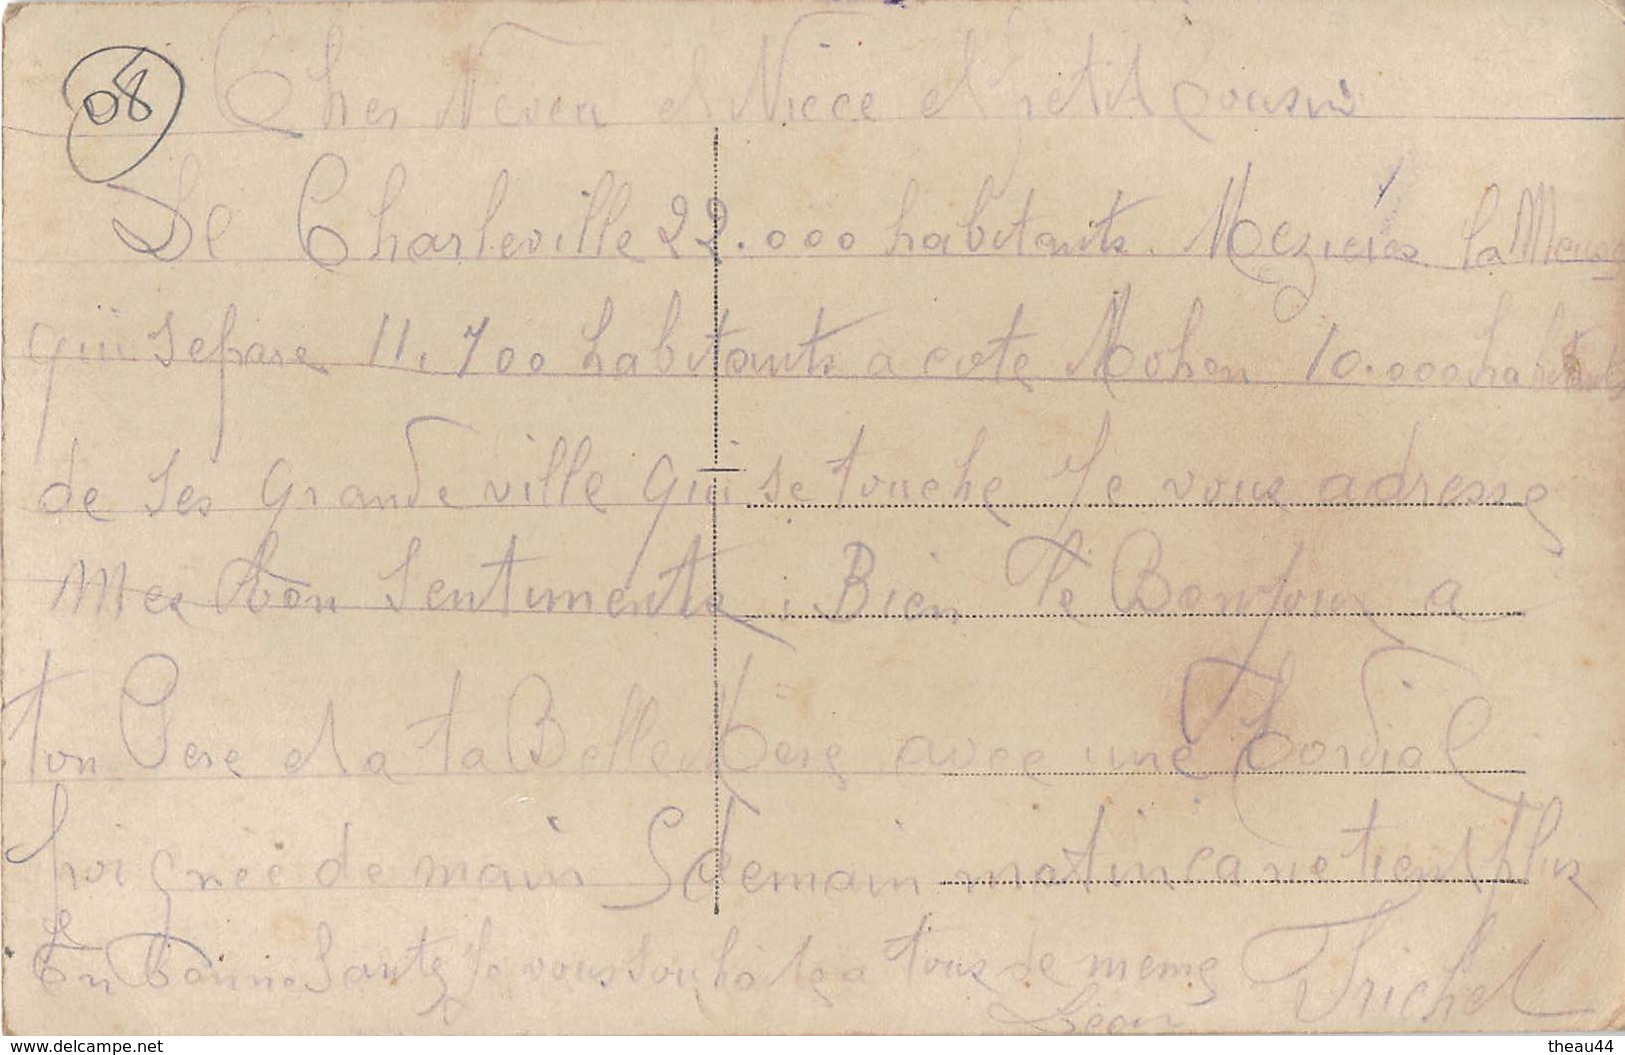 08
Cher Neveu et Niece et petit Cousin
De Charleville 22.000 habitants. Mezieres la Meuse
qui separe 11.700 habitants a cote Mohon 10.000 habitants
de ses grande ville qui se touche Je vous adresse
Mes bon sentiments. Bien le Bonjour a
ton Pere et a ta Belle Mere avec une Cordial
poignée de main demain matin ca ne tient plus
En bonne Sante Je vous souhaite a tous de meme
Léon Trichet
www.delcampe.net
theau44